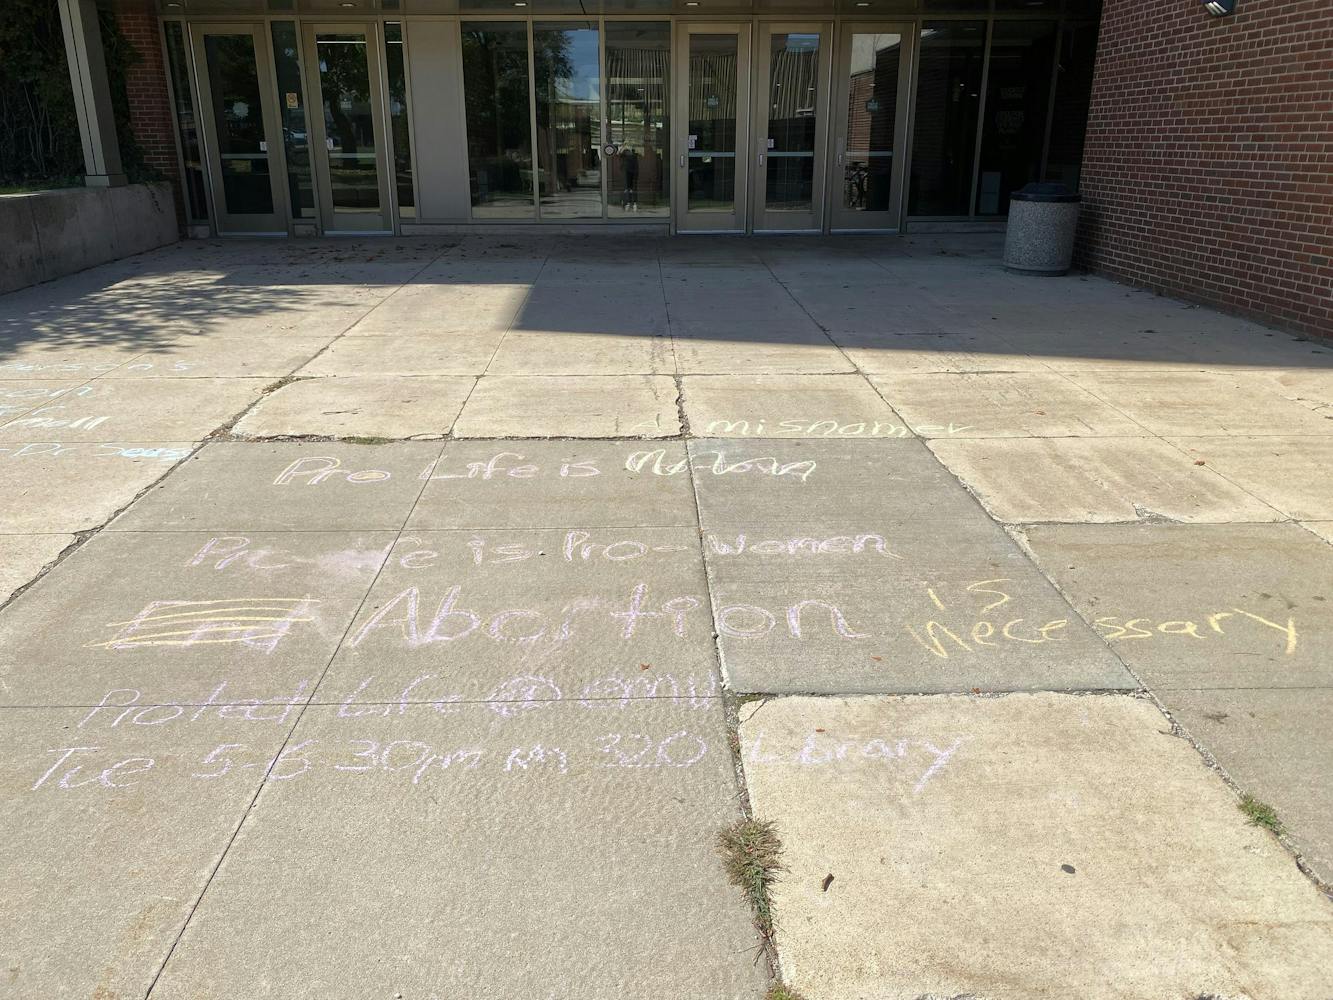 n's
Dr Seuss
A misnomer
Pro Life is
Pro Life is Pro-Women
End Abortion is Necessary
Protect Life @ emu
Tue 5-6:30pm Rm 320 Library